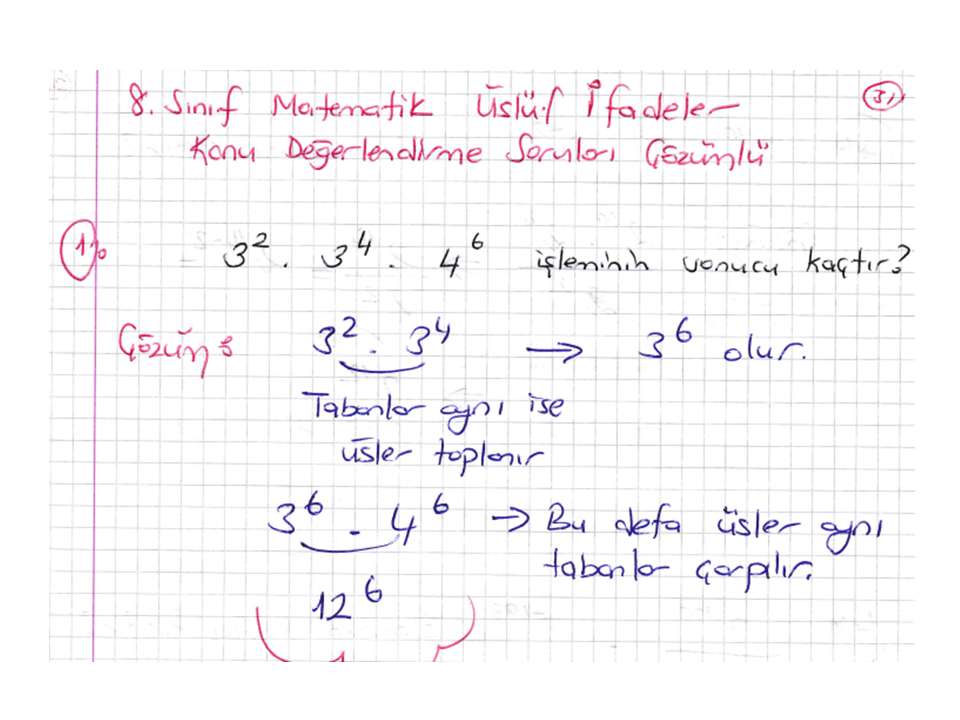 8. Sınıf Matematik Üslü İfadeler
31
Konu Değerlendirme Soruları Çözümlü
1%
3² . 3⁴ . 4⁶ işleminin sonucu kaçtır?
Çözüm : 3² . 3⁴ → 3⁶ olur.
Tabanlar aynı ise
üsler toplanır
3⁶ . 4⁶ → Bu defa üsler aynı
tabanlar çarpılır.
12⁶